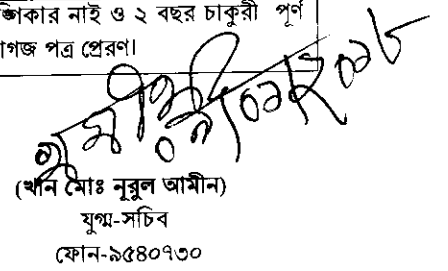 ঙ্গিকার নাই ও ২ বছর চাকুরী পূর্ণ
গজ পত্র প্রেরণ।
(খান মোঃ নূরুল আমীন)
যুগ্ম-সচিব
ফোন-৯৫৪০৭৩০